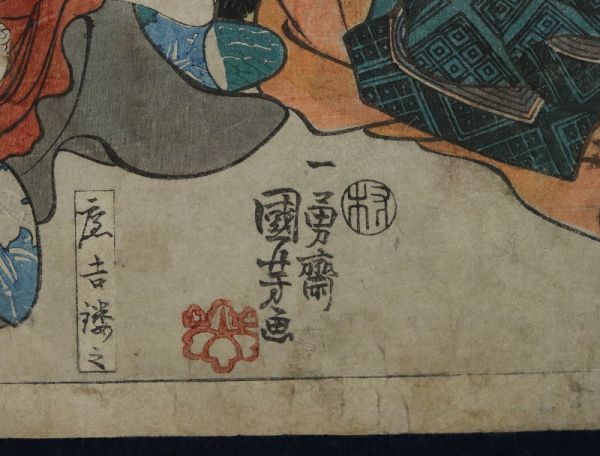 一勇齋
國芳画
村
庄吉鏤之